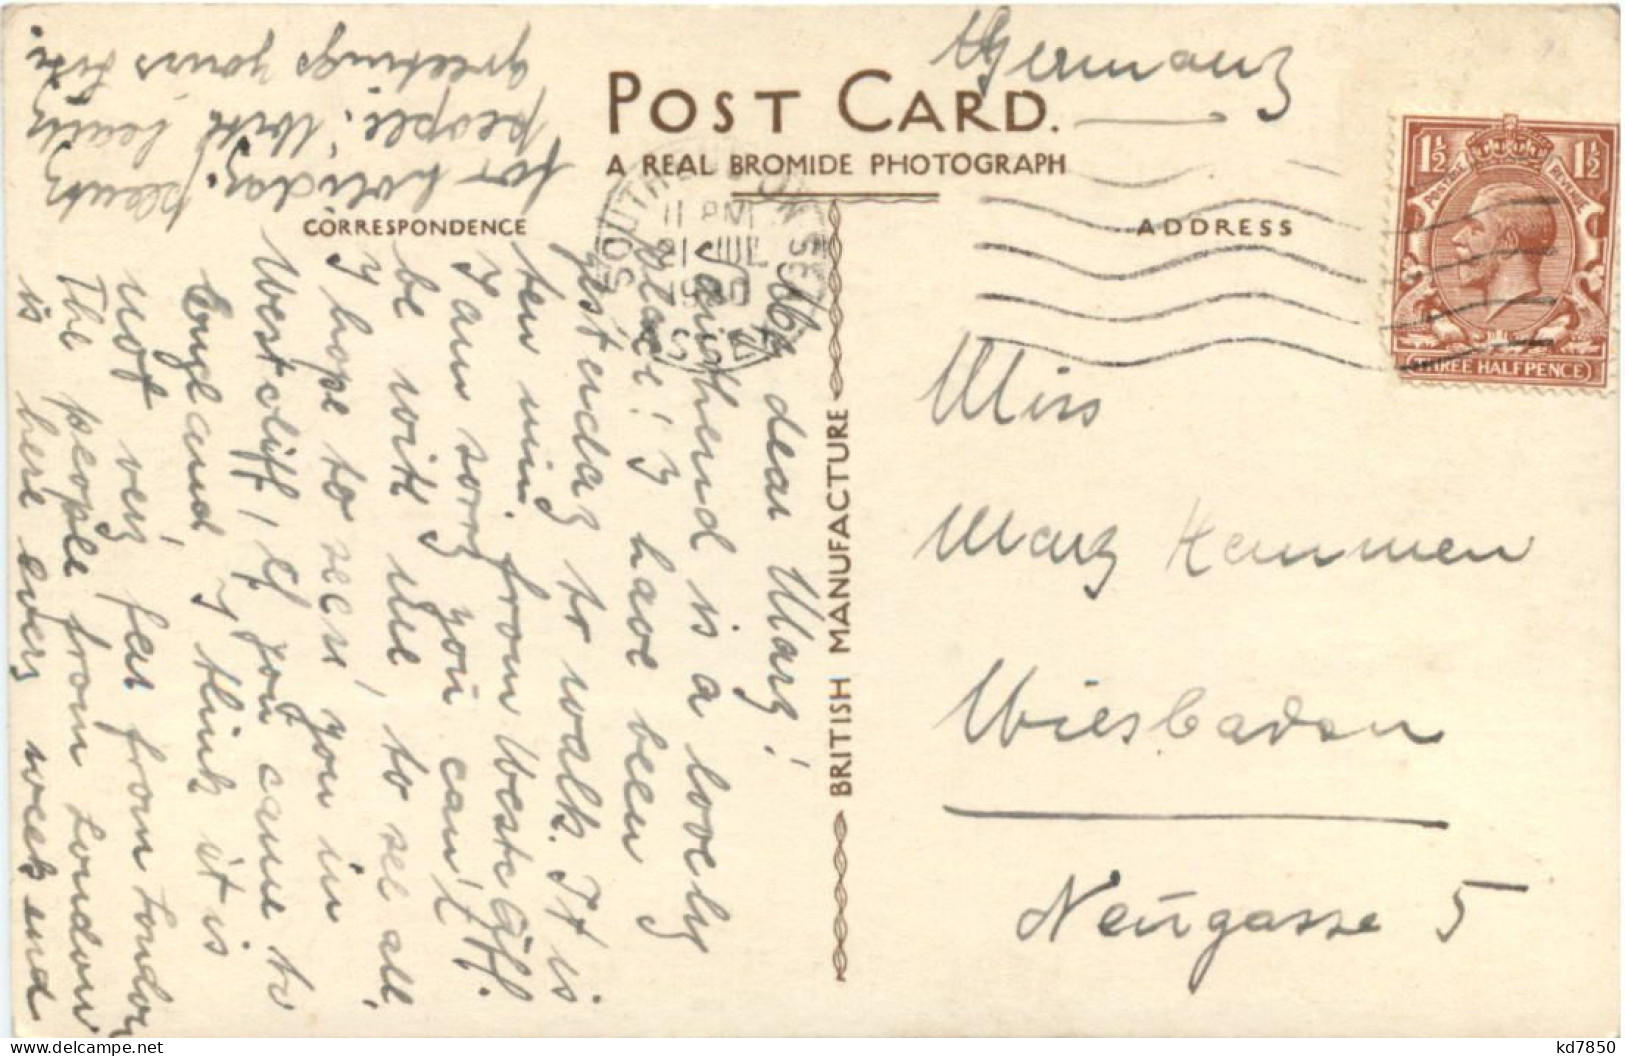 POST CARD.
A REAL BROMIDE PHOTOGRAPH
CORRESPONDENCE
ADDRESS
BRITISH MANUFACTURE
SOUTHEND-ON-SEA
11 PM
21 JUL
1930
ESSEX
POSTAGE REVENUE
1½ 1½
THREE HALFPENCE
My dear Mary!
Southend is a lovely
place! I have been
yesterday to walk. It is
ten min. from Westcliff.
I am sorry you can't
be with me, to see all.
I hope to seen you in
Westcliff, if you came to
England, I think it is
not very far from London
The people from London
is here every week end
for holiday.
people. With
greetings yours
Germany
Miss
Mary Hemmen
Wiesbaden
Neugasse 5
kd7850